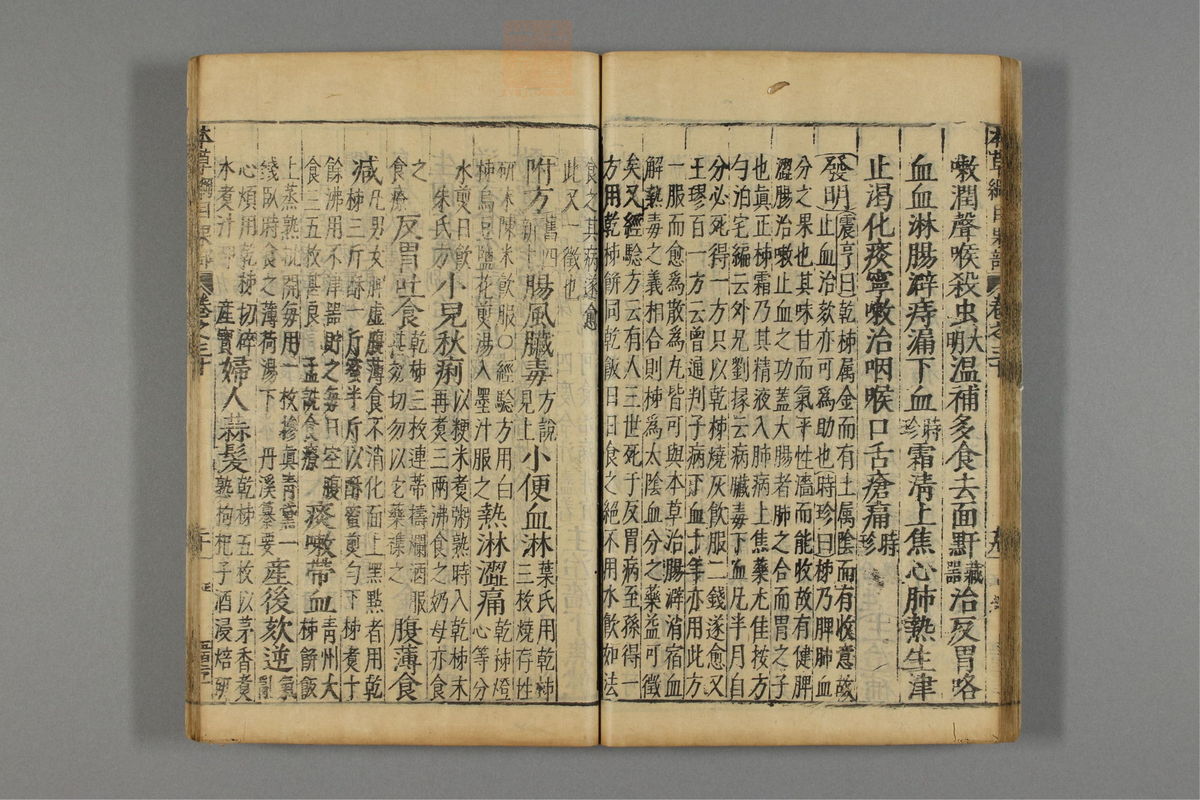 嗽潤聲喉殺虫大明溫補多食去面䵟藏器治反胃咯
血血淋腸澼痔漏下血時珍霜清上焦心肺熱生津
止渴化痰寧嗽治咽喉口舌瘡痛時珍
發明震亨曰乾柿属金而有土属陰而有收意故
止血治欬亦可為助也時珍曰柿乃脾肺血
分之果也其味甘而氣平性濇而能收故有健脾
澀腸治嗽止血之功蓋大腸者肺之合而胃之子
也真正柿霜乃其精液入肺病上焦藥尤佳按方
勺泊宅編云外兄劉掾云病臟毒下血凡半月自
分必死得一方只以乾柿燒灰飲服二錢遂愈又
王璆百一方云曾通判子病下血十年亦用此方
一服而愈為散為丸皆可與本草治腸澼消宿血
解熱毒之義相合則柿為太陰血分之藥益可徵
矣又經驗方云有人三世死于反胃病至孫得一
方用乾柿餅同乾飯日日食之絕不用水飲如法
食之其病遂愈
此又一徵也
附方舊四新 腸風臟毒方說見上小便血淋葉氏用乾柿三枚燒存性
研末陳米飲服○經驗方用白柿烏豆鹽花煎湯入墨汁服之熱淋澀痛乾柿燈心等分
水煎日飲朱氏方小兒秋痢以粳米煮粥熟時入乾柿末再煮三兩沸食之奶母亦食
之食療反胃吐食乾柿三枚連蒂擣爛酒服甚效切勿以它藥雜之腹薄食
減凡男女脾虛腹薄食不消化面上黑點者用乾柿三斤酥一斤蜜半斤以酥蜜煎勻下柿煮十
餘沸用不津器貯之每日空腹食三五枚甚良孟詵食療痰嗽帶血青州大柿餅飯
上蒸熟批開每用一枚摻真青黛一錢臥時食之薄荷湯下丹溪纂要產後欬逆氣亂
心煩用乾柿切碎水煮汁呷產寶婦人蒜髮乾柿五枚以茅香煮熟枸杞子酒浸焙研
本草綱目果部
卷之三十